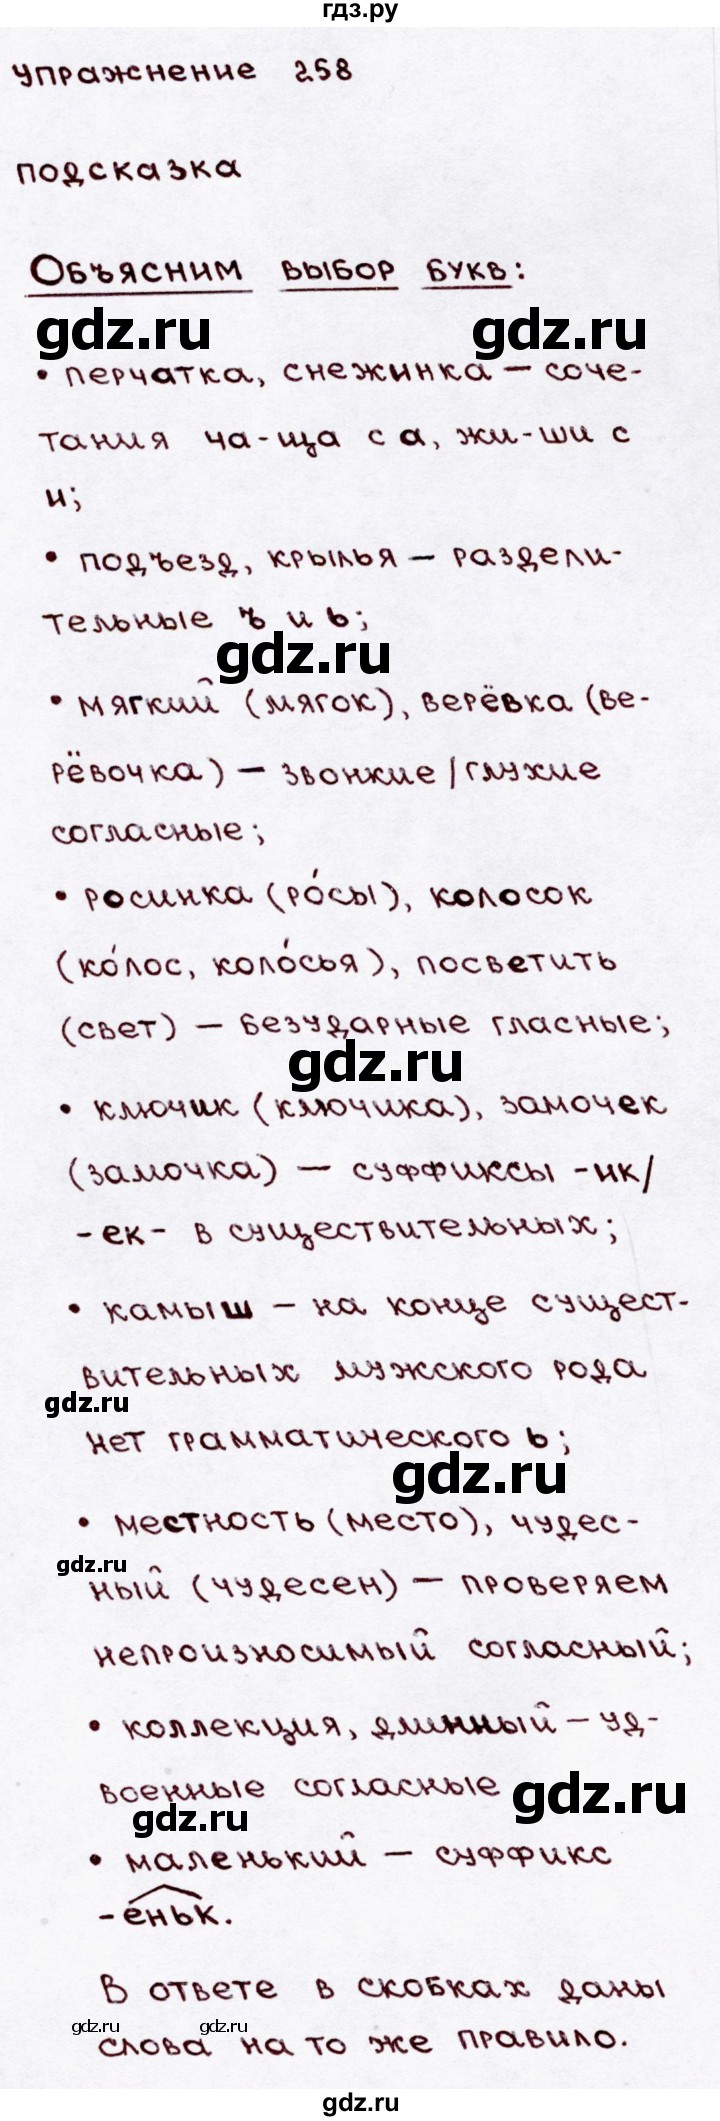 гдз.ру
упражнение 258
подсказка
Объясним выбор букв:
gdz.ru gdz.ru
• перчатка, снежинка – соче-
тания ча-ща с а, жи-ши с
и;
• подъезд, крылья – раздели-
тельные ъ и ь;
gdz.ru
• мягкий (мягок), верёвка (ве-
рёвочка) – звонкие/глухие
согласные;
• росинка (ро́сы), колосок
(ко́лос, коло́сья), посветить
(свет) – безударные гласные;
gdz.ru
• ключик (ключика), замочек
(замочка) – суффиксы -ик/
-ек- в существительных;
• камыш – на конце сущест-
вительных мужского рода
gdz.ru
нет грамматического ь;
gdz.ru
• местность (место), чудес-
gdz.ru
ный (чудесен) – проверяем
непроизносимый согласный;
• коллекция, длинный – уд-
военные согласные
gdz.ru
gdz.ru
• маленький – суффикс
-еньк.
В ответе в скобках даны
gdz.ru gdz.ru
слова на то же правило.
gdz.ru